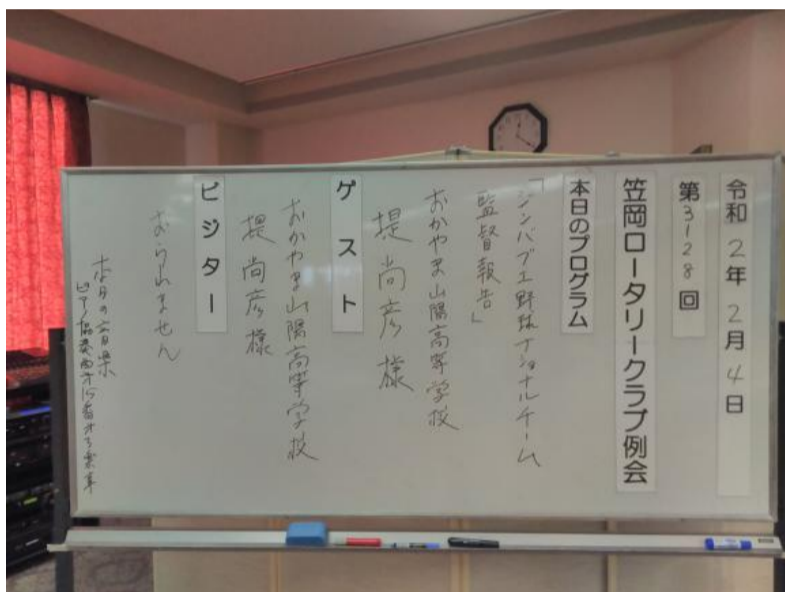 令和2年2月4日
第3128回
笠岡ロータリークラブ例会
本日のプログラム
「ジンバブエ野球ナショナルチーム
監督報告」
おかやま山陽高等学校
堤尚彦様
ゲスト
おかやま山陽高等学校
堤尚彦様
ビジター
おられません
本日の音楽
ピアノ協奏曲才15番才3楽章